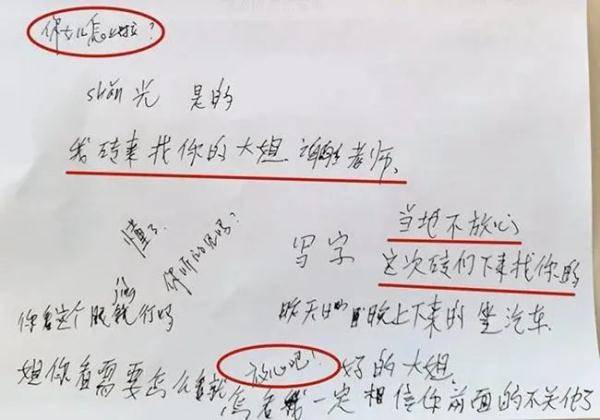 你女儿怎么啦?
shǎn 光 是的
我砖来找你的大姐 谢谢老师、
当地不放心
懂了
你听的见吗?
写字
这次砖们下来找你的
你看这个眼镜行吗 jing
昨天的 晚上下来的 坐汽车
姐你看需要怎么多就 放心吧! 好的大姐
我一定相信你前面的不关你了